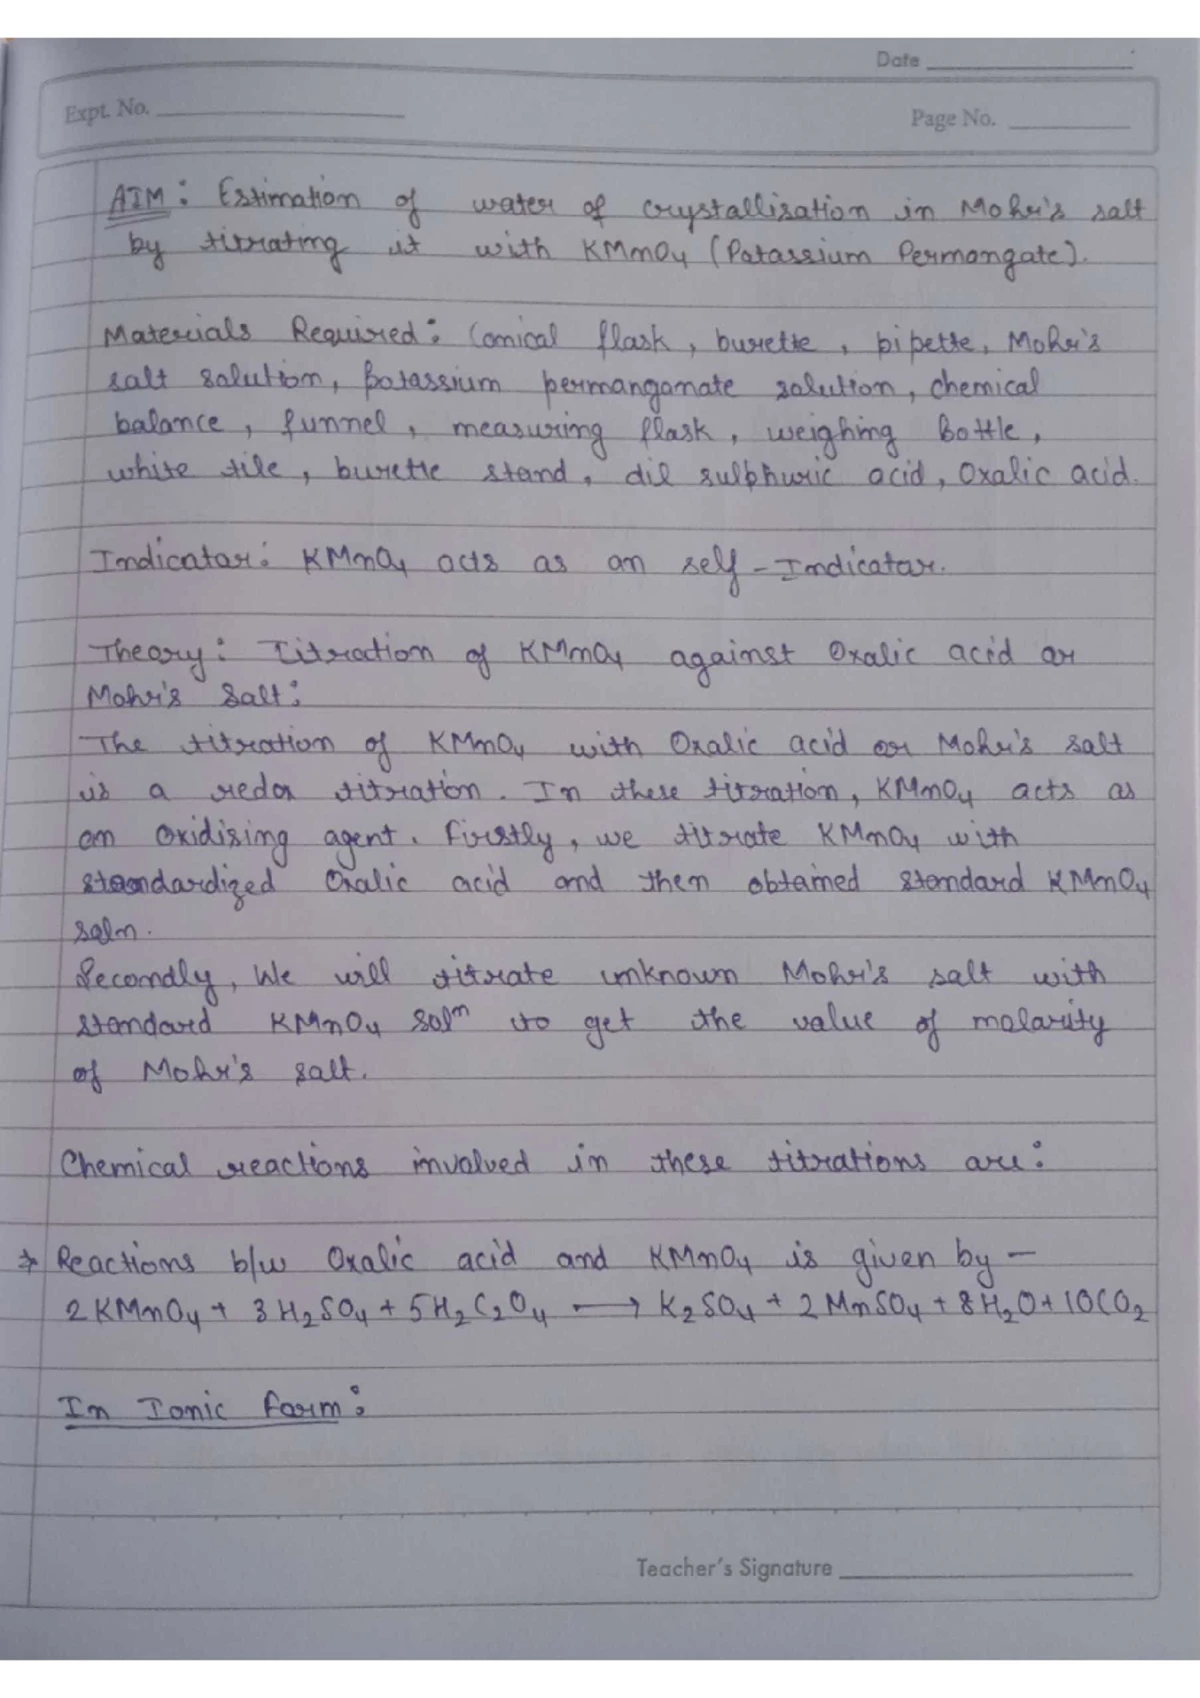 Date
Expt. No.
Page No.
AIM: Estimation of water of crystallisation in Mohr's salt
by titrating it with KMnO4 (Potassium Permangate).
Materials Required: Conical flask, burette, pipette, Mohr's
salt solution, potassium permanganate solution, chemical
balance, funnel, measuring flask, weighing Bottle,
white tile, burette stand, dil sulphuric acid, Oxalic acid.
Indicator: KMnO4 acts as an self-Indicator.
Theory: Titration of KMnO4 against Oxalic acid or
Mohr's Salt:
The titration of KMnO4 with Oxalic acid or Mohr's salt
is a redox titration. In these titration, KMnO4 acts as
an oxidising agent. Firstly, we titrate KMnO4 with
standardized Oxalic acid and then obtained standard KMnO4
soln.
Secondly, We will titrate unknown Mohr's salt with
standard KMnO4 solⁿ to get the value of molarity
of Mohr's salt.
Chemical reactions involved in these titrations are:
* Reactions b/w Oxalic acid and KMnO4 is given by -
2KMnO₄ + 3H₂SO₄ + 5H₂C₂O₄ ⟶ K₂SO₄ + 2MnSO₄ + 8H₂O + 10CO₂
In Ionic form:
Teacher's Signature